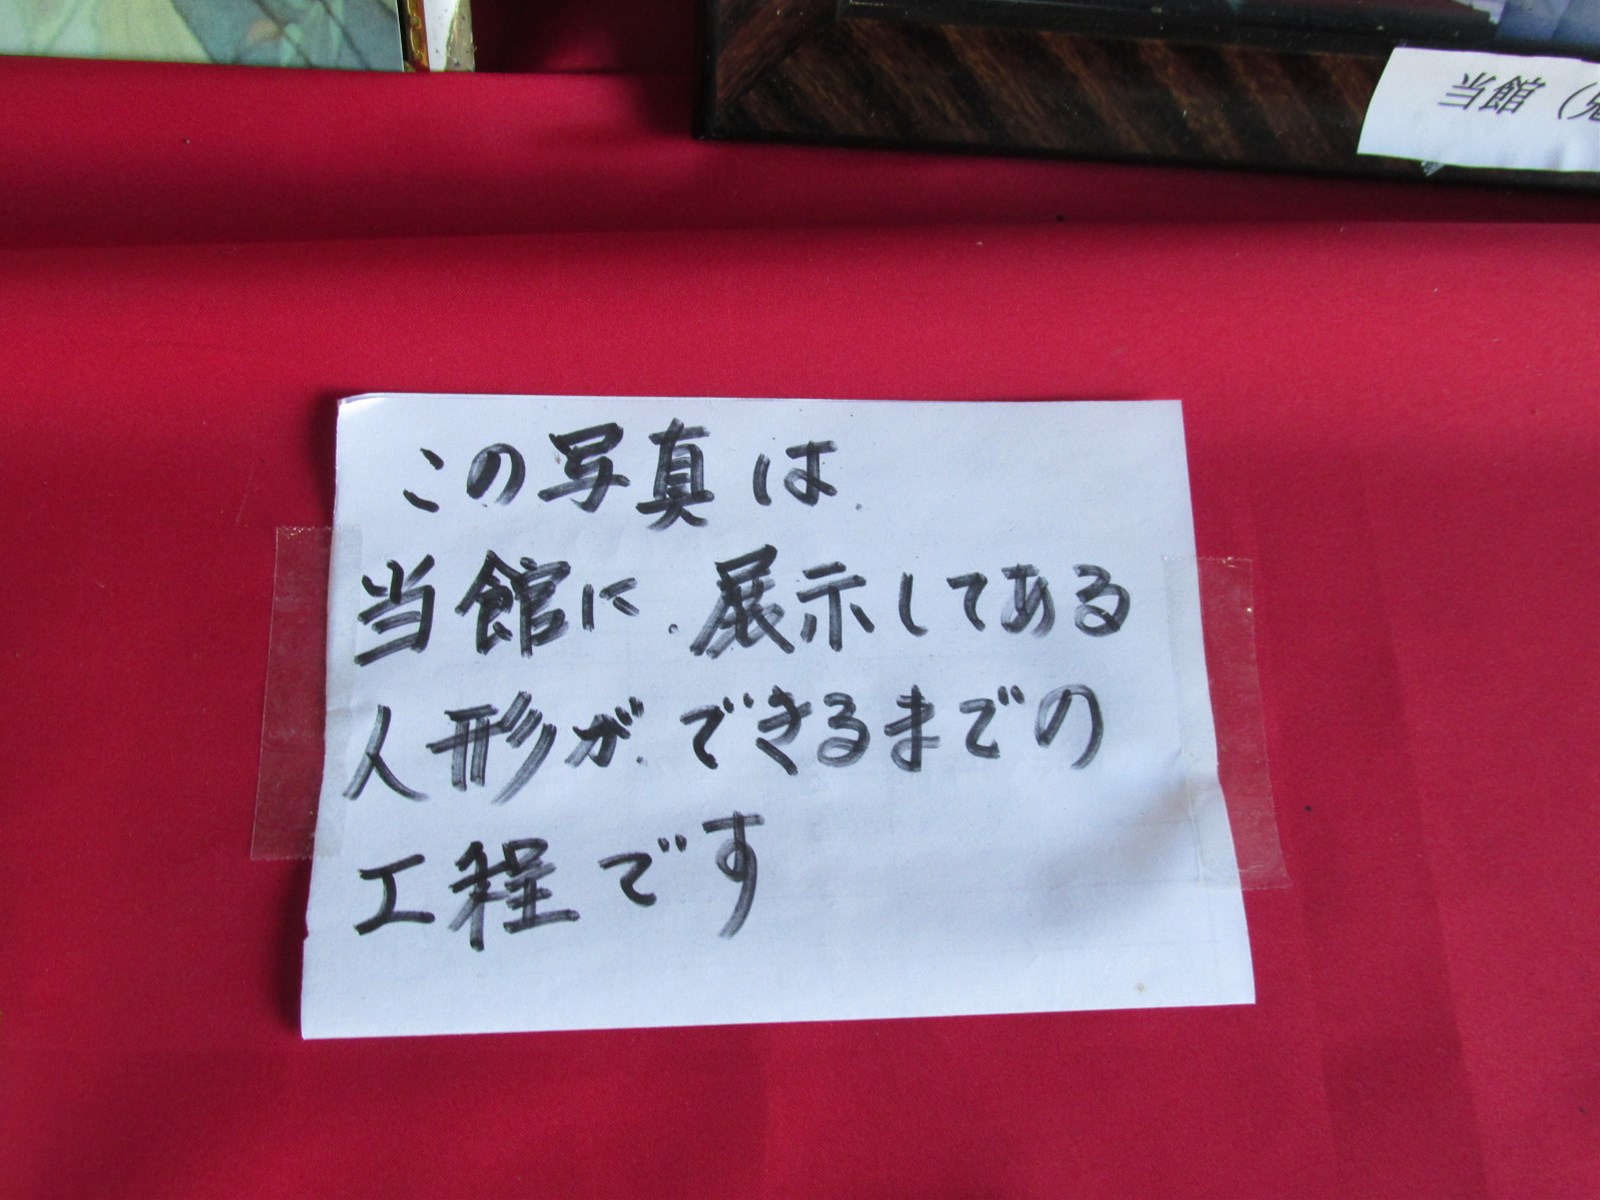 当館（
この写真は
当館に展示してある
人形ができるまでの
工程です